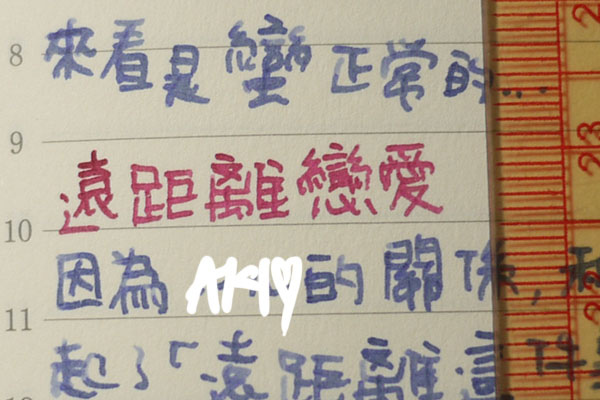 8 來看是蠻正常的...
9
遠距離戀愛
10
因為 AKIO的關係,
11
起了「遠距離這件
23